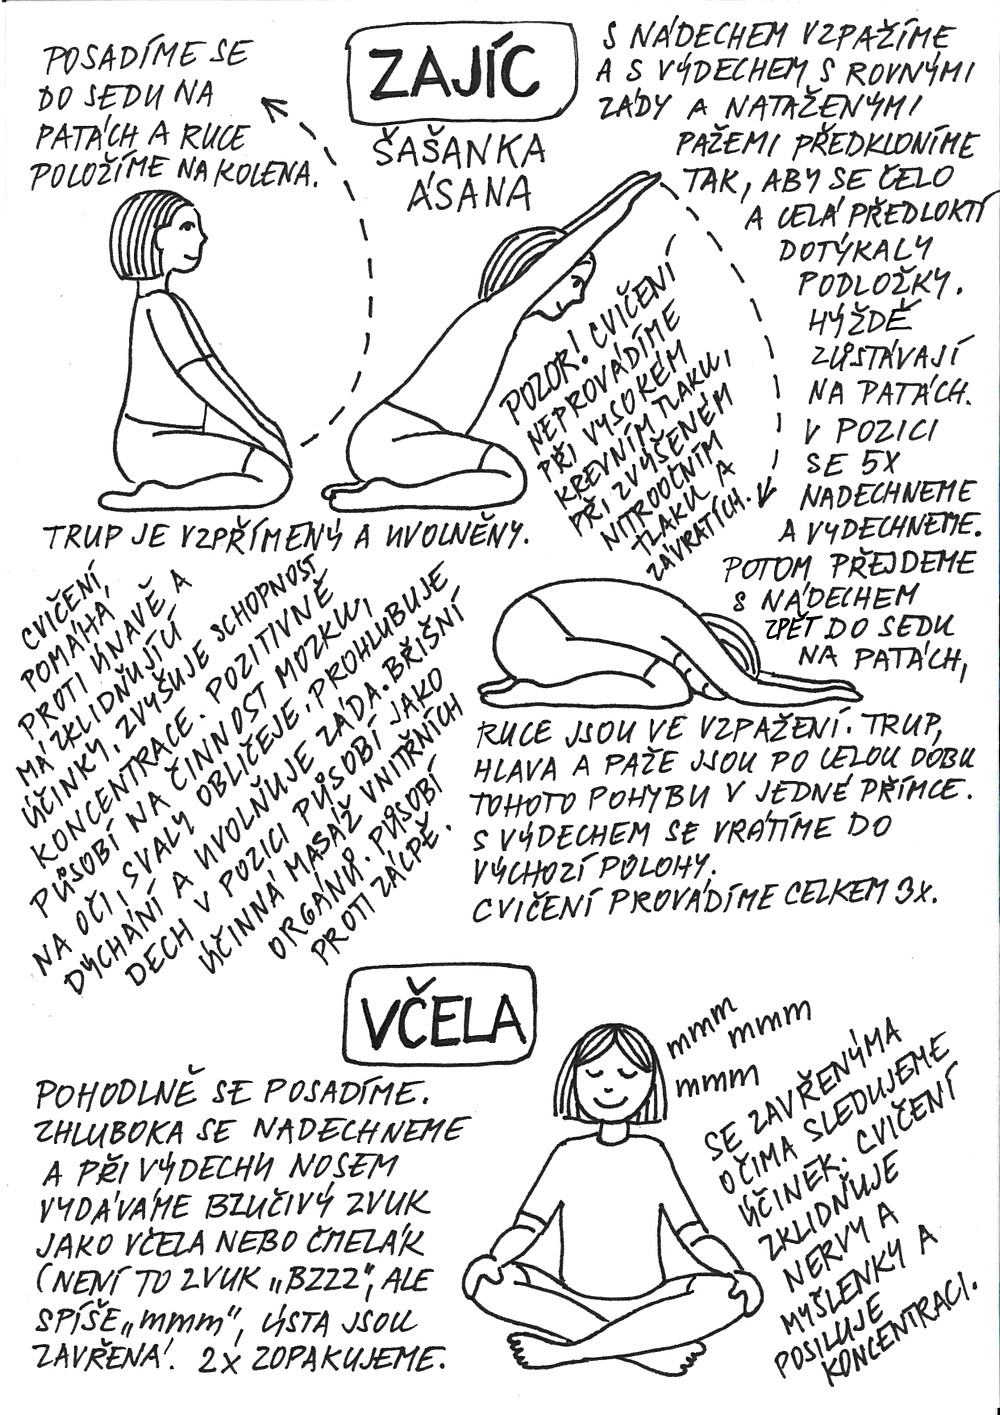 ZAJÍC
ŠAŠANKA
ÁSANA
POSADÍME SE
DO SEDU NA
PATÁCH A RUCE
POLOŽÍME NA KOLENA.
TRUP JE VZPŘÍMENÝ A UVOLNĚNÝ.
S NÁDECHEM VZPAŽÍME
A S VÝDECHEM, S ROVNÝMI
ZÁDY A NATAŽENÝMI
PAŽEMI PŘEDKLONÍME
TAK, ABY SE ČELO
A CELÁ PŘEDLOKTÍ
DOTÝKALY
PODLOŽKY.
HÝŽDĚ
ZŮSTÁVAJÍ
NA PATÁCH.
V POZICI
SE 5X
NADECHNEME
A VYDECHNEME.
POTOM PŘEJDEME
S NÁDECHEM
ZPĚT DO SEDU
NA PATÁCH,
RUCE JSOU VE VZPAŽENÍ. TRUP,
HLAVA A PAŽE JSOU PO CELOU DOBU
TOHOTO POHYBU V JEDNÉ PŘÍMCE.
S VÝDECHEM SE VRÁTÍME DO
VÝCHOZÍ POLOHY.
CVIČENÍ PROVÁDÍME CELKEM 3X.
POZOR! CVIČENÍ
NEPROVÁDÍME
PŘI VYSOKÉM
KREVNÍM TLAKU,
PŘI ZVÝŠENÉM
NITROOČNÍM
TLAKU A
ZÁVRATÍCH.
CVIČENÍ
POMÁHÁ
PROTI ÚNAVĚ A
MÁ ZKLIDŇUJÍCÍ
ÚČINKY, ZVYŠUJE SCHOPNOST
KONCENTRACE. POZITIVNĚ
PŮSOBÍ NA ČINNOST MOZKU,
NA OČI, SVALY OBLIČEJE, PROHLUBUJE
DÝCHÁNÍ A UVOLŇUJE ZÁDA. BŘIŠNÍ
DECH V POZICI PŮSOBÍ JAKO
ÚČINNÁ MASÁŽ VNITŘNÍCH
ORGÁNŮ. PŮSOBÍ
PROTI ZÁCPĚ.
VČELA
POHODLNĚ SE POSADÍME.
ZHLUBOKA SE NADECHNEME
A PŘI VÝDECHU NOSEM
VYDÁVÁME BZUČIVÝ ZVUK
JAKO VČELA NEBO ČMELÁK
(NENÍ TO ZVUK „BZZZ", ALE
SPÍŠE „mmm", ÚSTA JSOU
ZAVŘENÁ. 2X ZOPAKUJEME.
mmm
mmm
mmm
SE ZAVŘENÝMA
OČIMA SLEDUJEME
ÚČINEK. CVIČENÍ
ZKLIDŇUJE
NERVY A
MYŠLENKY A
POSILUJE
KONCENTRACI.